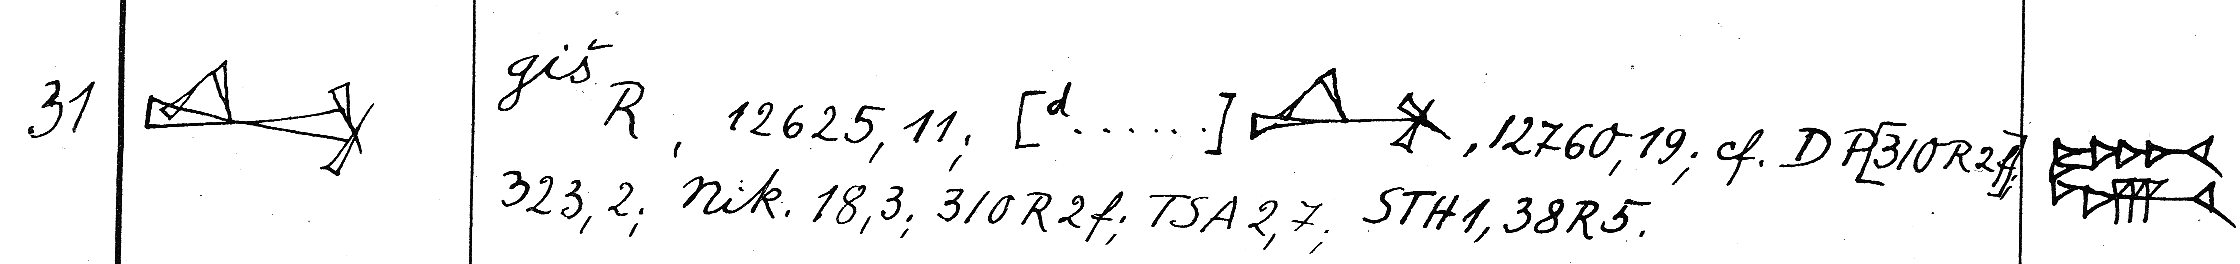 31 giš R, 12625, 11; [d......] , 12760, 19; cf. DP [310 R 2f];
323, 2; Nik. 18, 3; 310 R 2f; TSA 2, 7; STH 1, 38 R 5.